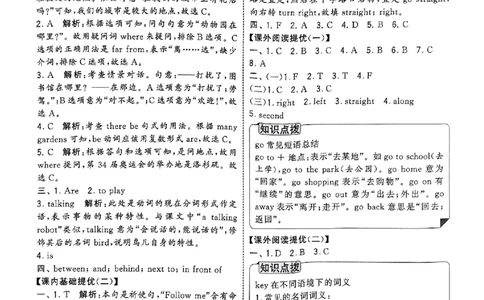 吗?”可知,我们的城市是较大的地点,故选 C。
2. A 解析:根据选项可知,问句句意为“动物园在
哪里?”。故用疑问词 where 来提问,排除 B 选项。C
选项的正确用法是 far from,表示“离……远”,缺少
介词,排除 C 选项,故选 A。
3. A 解析:考查情景对话。句意:——打扰了,图
书馆在哪里?——在那边。A 选项意为“打扰了;劳
驾。”;B 选项意为“对不起。”;C 选项意为“欢迎!”,故
选 A。
4. C 解析:考查 there be 句式的用法。根据 many
gardens 可知,be 动词应该用复数形式 are,故选 C。
5. C 解析:根据答句和选项可知,是问地点,故用
where 提问,第 34 届奥运会的举办地是洛杉矶。故
选 C。
三、1. Are 2. to play
3. talking 解析:此处是动词的现在分词形式作定
语,表示事物的某种特性。与课文中“a talking
robot”类似,talking 意为“会说话的,能说话的”,修
饰其后的名词 bird,说明鸟儿自身的特性。
4. is
四、between; and; behind; next to; in front of
【课内基础提优(二)】
一、1. T 解析:本句是祈使句,“Follow me”含有命
向右转 turn right,故填 straight; right。
四、1. F 2. A 3. C 4. D 5. B 6. C
【课外阅读提优(一)】
一、1. B 2. B 3. C 4. A 5. B 6. B 7. C
8. A
二、(一)1. F 2. T 3. T 4. F
(二)1. C 2. A 3. C
(三)1. right 2. left 3. straight 4. along
5. second
知识点拨
go 常见短语总结
go to + 地点:表示“去某地”。如 go to school(去
上学),go to the park(去公园)。go home 意为
“回家”。go shopping 表示“去购物”。go on 有
“继续”的意思。go out 意为“出去;外出”。go
away 表示“离开;走开”。go back 意思是“回去;
返回”。
【课外阅读提优(二)】
一、1. D 2. B 3. C
知识点拨
key 在不同语境下的词义
1. 常见的名词词义: